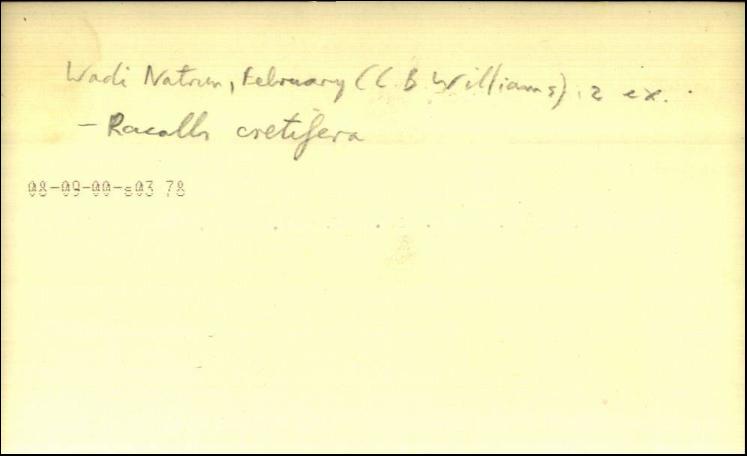 Wadi Natrun, February (C B Williams). 2 ex.
– Racallis cretifera
08-09-00-s03 78